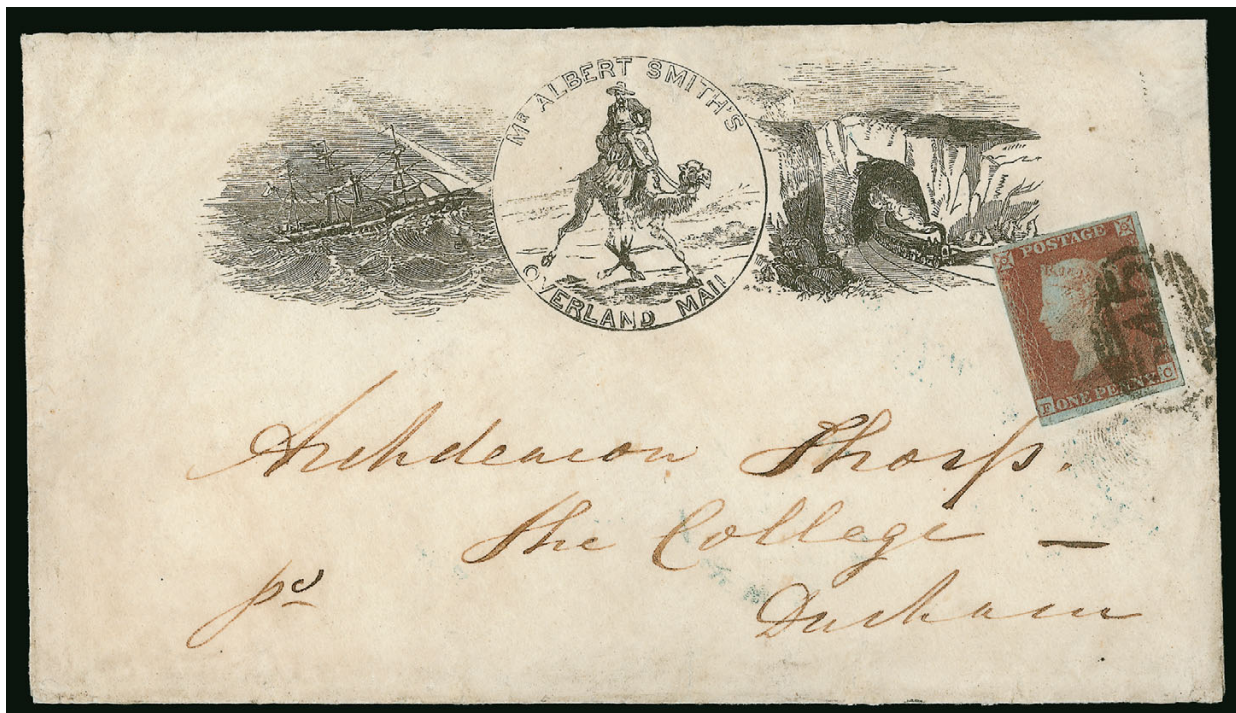 Mr ALBERT SMITH'S
OVERLAND MAIL
POSTAGE
F ONE PENNY C
Archdeacon Thorp.
The College —
Durham
pd